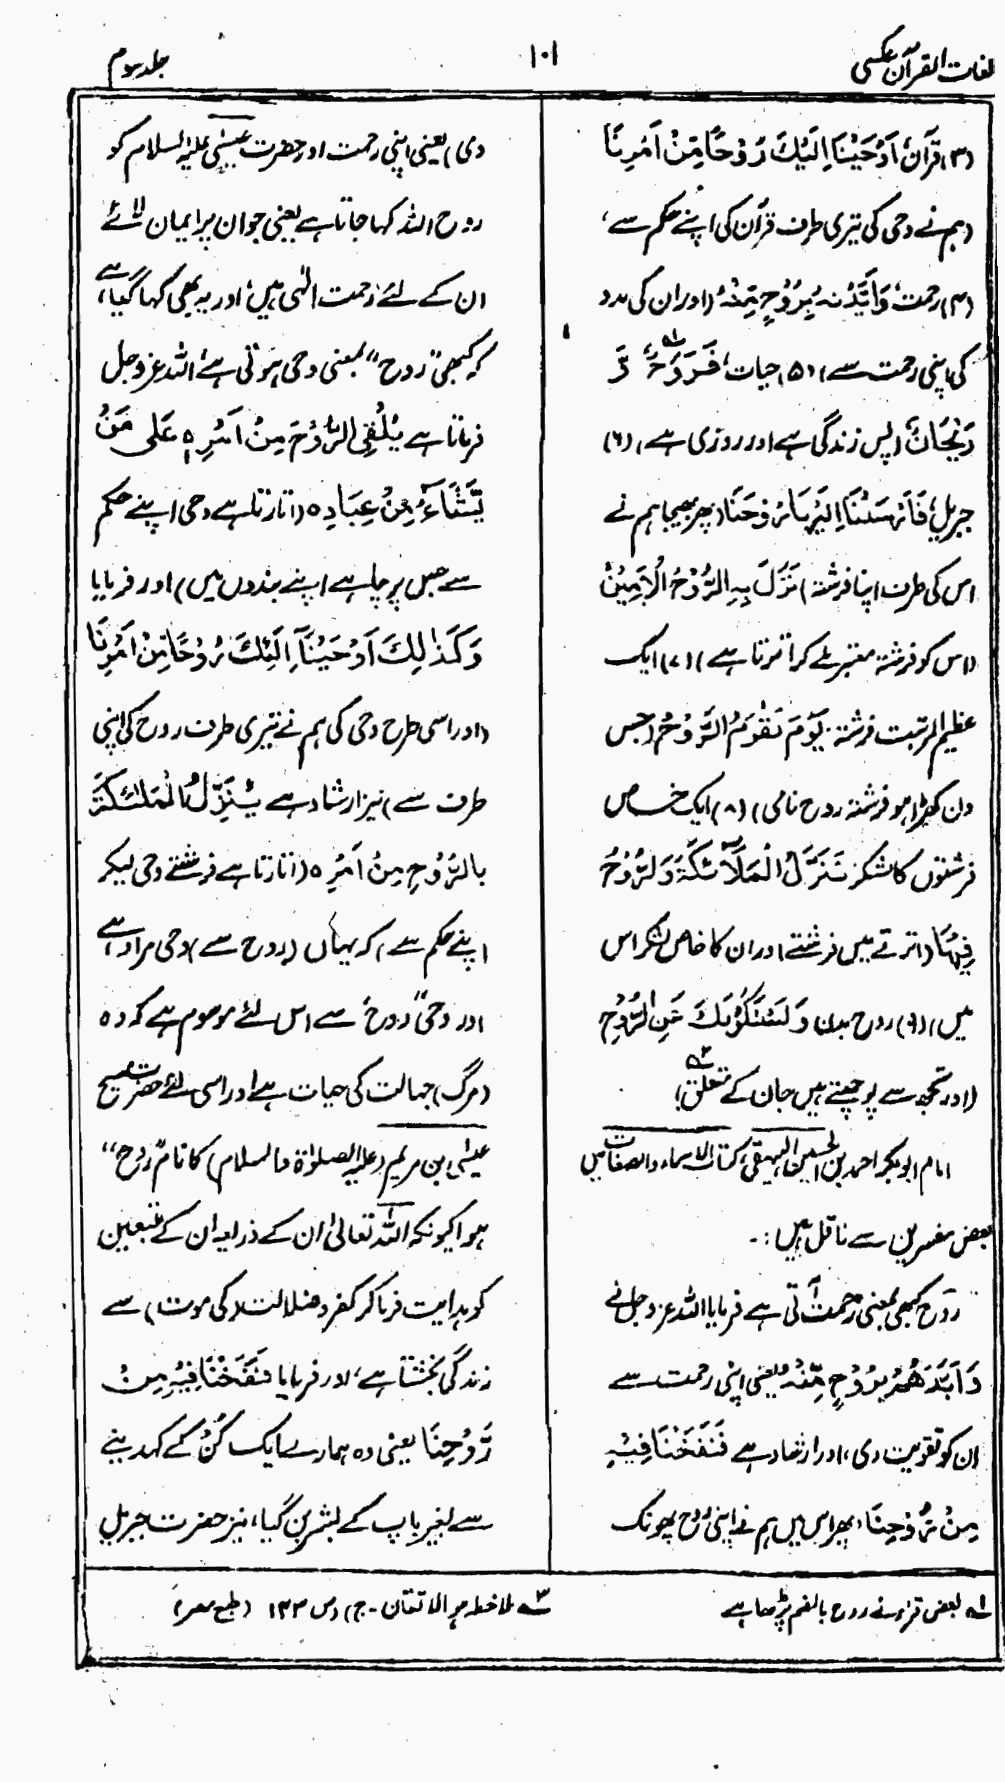 لغات القرآن عکسی
۱۰۱
جلد سوم
(۳) قرآن، اَوْحَيْنَا اِلَيْكَ رُوْحًا مِّنْ اَمْرِنَا
(ہم نے وحی کی تیری طرف قرآن کی اپنے حکم سے)
(۴) رحمت، وَاَيَّدَهُمْ بِرُوْحٍ مِّنْهُ (اور ان کی مدد
کی اپنی رحمت سے) (۵) حیات، فَرَوْحٌ لہ وَّ
رَيْحَانٌ (پس زندگی ہے اور روزی ہے) (۶)
جبریل، فَاَرْسَلْنَا اِلَيْهَا رُوْحَنَا (پھر بھیجا ہم نے
اس کی طرف اپنا فرشتہ) نَزَلَ بِهِ الرُّوْحُ الْاَمِيْنُ
(اس کو فرشتہ معتبر لے کر اترتا ہے) (۷) ایک
عظیم المرتبت فرشتہ، يَوْمَ يَقُوْمُ الرُّوْحُ (جس
دن کھڑا ہو فرشتہ روح نامی) (۸) ایک خاص
فرشتوں کا لشکر تَنَزَّلُ الْمَلَآئِكَةُ وَالرُّوْحُ
فِيْهَا (اترتے ہیں فرشتے اور ان کا خاص لشکر اس
میں) (۹) روح بدن وَيَسْئَلُوْنَكَ عَنِ الرُّوْحِ
(اور تجھ سے پوچھتے ہیں جان کے متعلق) ۲ہ
امام ابو بکر احمد بن الحسین البیہقی، کتاب الاسماء والصفات میں
بعض مفسرین سے ناقل ہیں :-
روح کبھی بمعنی رحمت آتی ہے فرمایا اللہ عزوجل نے
وَاَيَّدَهُمْ بِرُوْحٍ مِّنْهُ یعنی اپنی رحمت سے
ان کو تقویت دی، اور ارشاد ہے فَنَفَخْنَا فِيْهِ
مِنْ رُّوْحِنَا، پھر اس میں ہم نے اپنی روح پھونک
دی) یعنی اپنی رحمت اور حضرت عیسٰی علیہ السلام کو
روح اللہ کہا جاتا ہے یعنی جو ان پر ایمان لائے
ان کے لئے رحمت الٰہی ہیں، اور یہ بھی کہا گیا ہے،
کہ کبھی "روح" بمعنی وحی ہوتی ہے، اللہ عزوجل
فرماتا ہے يُلْقِي الرُّوْحَ مِنْ اَمْرِهٖ عَلٰى مَنْ
يَّشَآءُ مِنْ عِبَادِهٖ (اتارتا ہے وحی اپنے حکم
سے جس پر چاہے اپنے بندوں میں) اور فرمایا
وَكَذٰلِكَ اَوْحَيْنَآ اِلَيْكَ رُوْحًا مِّنْ اَمْرِنَا
(اور اسی طرح وحی کی ہم نے تیری طرف روح کی اپنی
طرف سے) نیز ارشاد ہے يُنَزِّلُ الْمَلٰئِكَةَ
بِالرُّوْحِ مِنْ اَمْرِهٖ (اتارتا ہے فرشتے وحی لیکر
اپنے حکم سے) کہ یہاں (روح سے) وحی مراد ہے
اور وحی "روح" سے اس لئے موسوم ہے کہ وہ
(مرگ) جہالت کی حیات ہے اور اسی لئے حضرت مسیح
عیسٰی بن مریم (علیہ الصلوٰۃ والسلام) کا نام "روح"
ہوا کیونکہ اللہ تعالیٰ ان کے ذریعہ ان کے متبعین
کو ہدایت فرما کر کفر و ضلالت (کی موت) سے
زندگی بخشتا ہے، اور فرمایا فَنَفَخْنَا فِيْهِ مِنْ
رُّوْحِنَا یعنی وہ ہمارے ایک کُنْ کے کہدینے
سے بغیر باپ کے بشر بن گیا، نیز حضرت جبریل
۱ہ بعض قراء نے روح بالضم پڑھا ہے
۲ہ ملاحظہ ہو الاتقان - ج ۱ ص ۱۴۳ (طبع مصر)